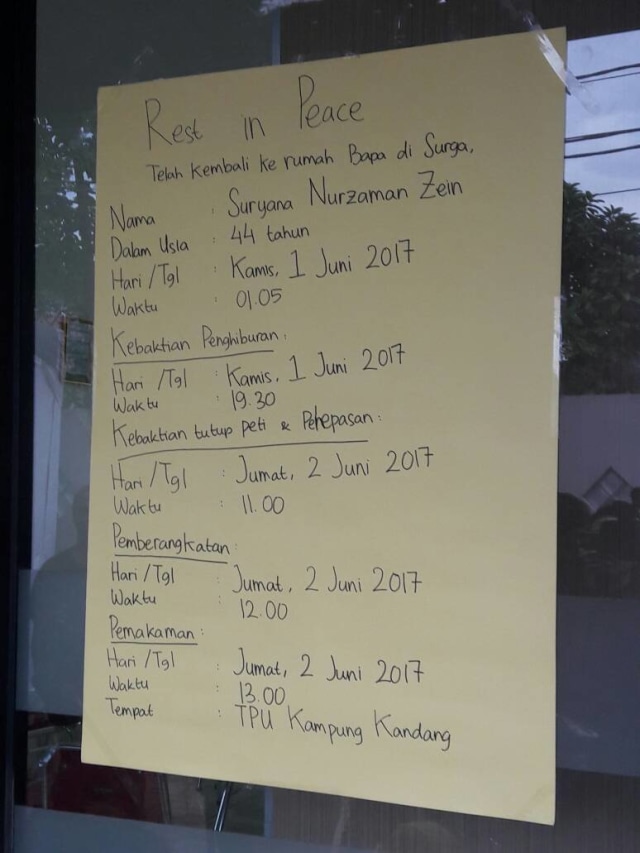 Rest in Peace
Telah Kembali ke rumah Bapa di Surga,
Nama : Suryana Nurzaman Zein
Dalam Usia : 44 tahun
Hari /Tgl : Kamis, 1 Juni 2017
Waktu : 01.05
Kebaktian Penghiburan :
Hari /Tgl : Kamis, 1 Juni 2017
Waktu : 19.30
Kebaktian tutup peti & Pehepasan :
Hari /Tgl : Jumat, 2 Juni 2017
Waktu : 11.00
Pemberangkatan :
Hari /Tgl : Jumat, 2 Juni 2017
Waktu : 12.00
Pemakaman :
Hari /Tgl : Jumat, 2 Juni 2017
Waktu : 13.00
Tempat : TPU Kampung Kandang